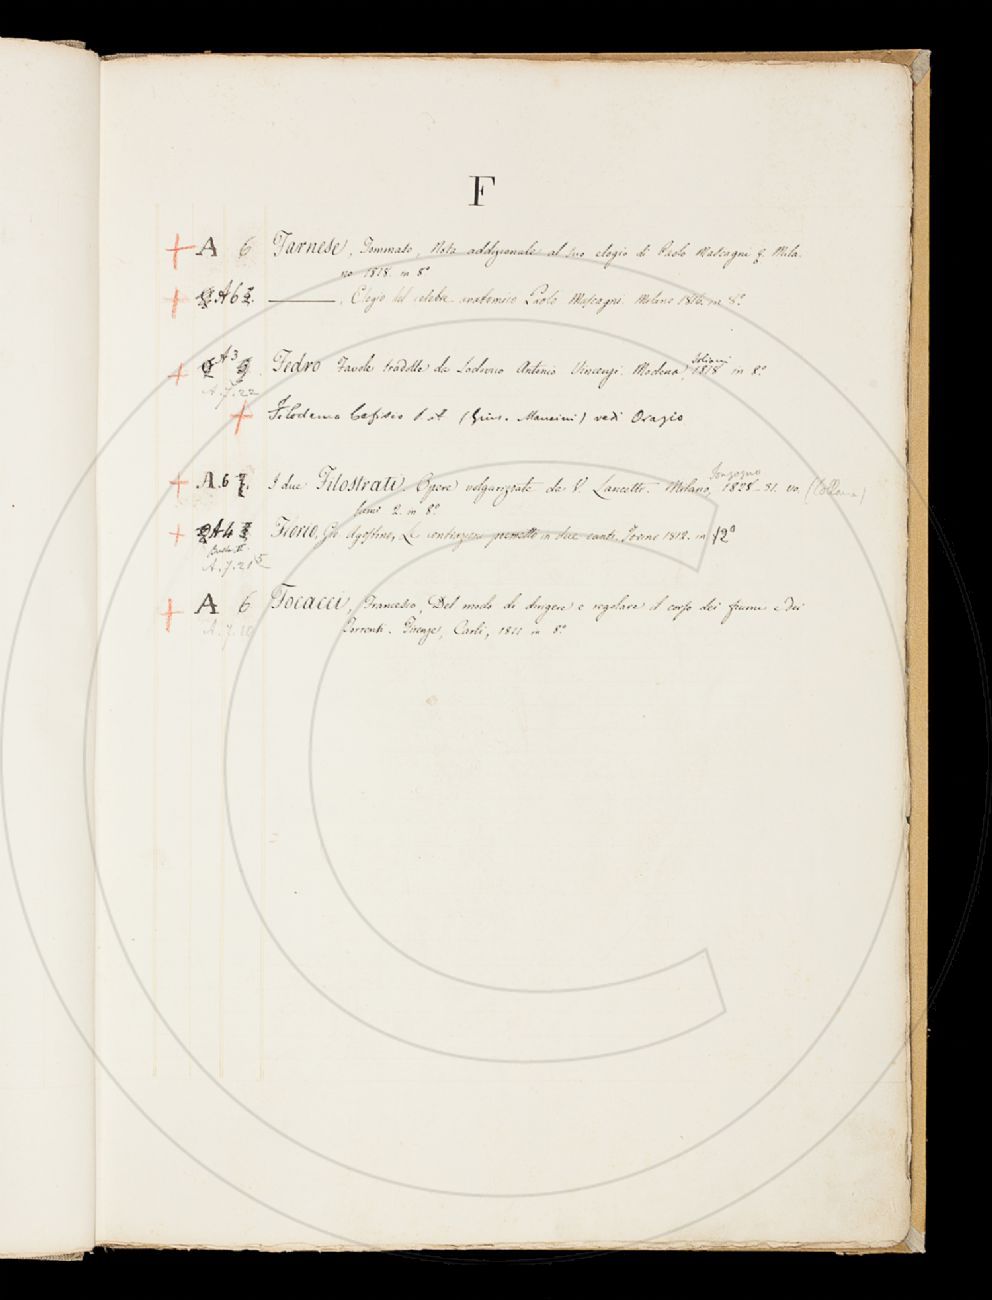 F
+ A 6 Farnese, Tommaso, Nota addizionale al suo elogio di Paolo Mascagni &. Mila-
no 1818. in 8º
+ A 6 ———. Elogio del celebre anatomico Paolo Mascagni. Milano 1816. in 8º
+ A 3 Fedro Favole tradotte da Lodovico Antonio Vincenzi. Modena, Soliani 1818 in 8º
A.7.22
+ Filodemo Cefisio P. A. (Gius. Mancini) vedi Orazio
+ A. 6 I due Filostrati. Opere volgarizzate da V. Lancetti. Milano, Sonzogno 1828-31. vo. (Collana)
lumi 2 in 8º
+ A 4 Florio, Gio. Agostino, Le in due canti. Torino 1812. in 12º
Busta II
A.7.21 5
+ A 6 Focacci, Francesco, Del modo di dirigere e regolare il corso dei fiumi e dei
A.7.10 Torrenti. Firenze, Carli, 1811 in 8º